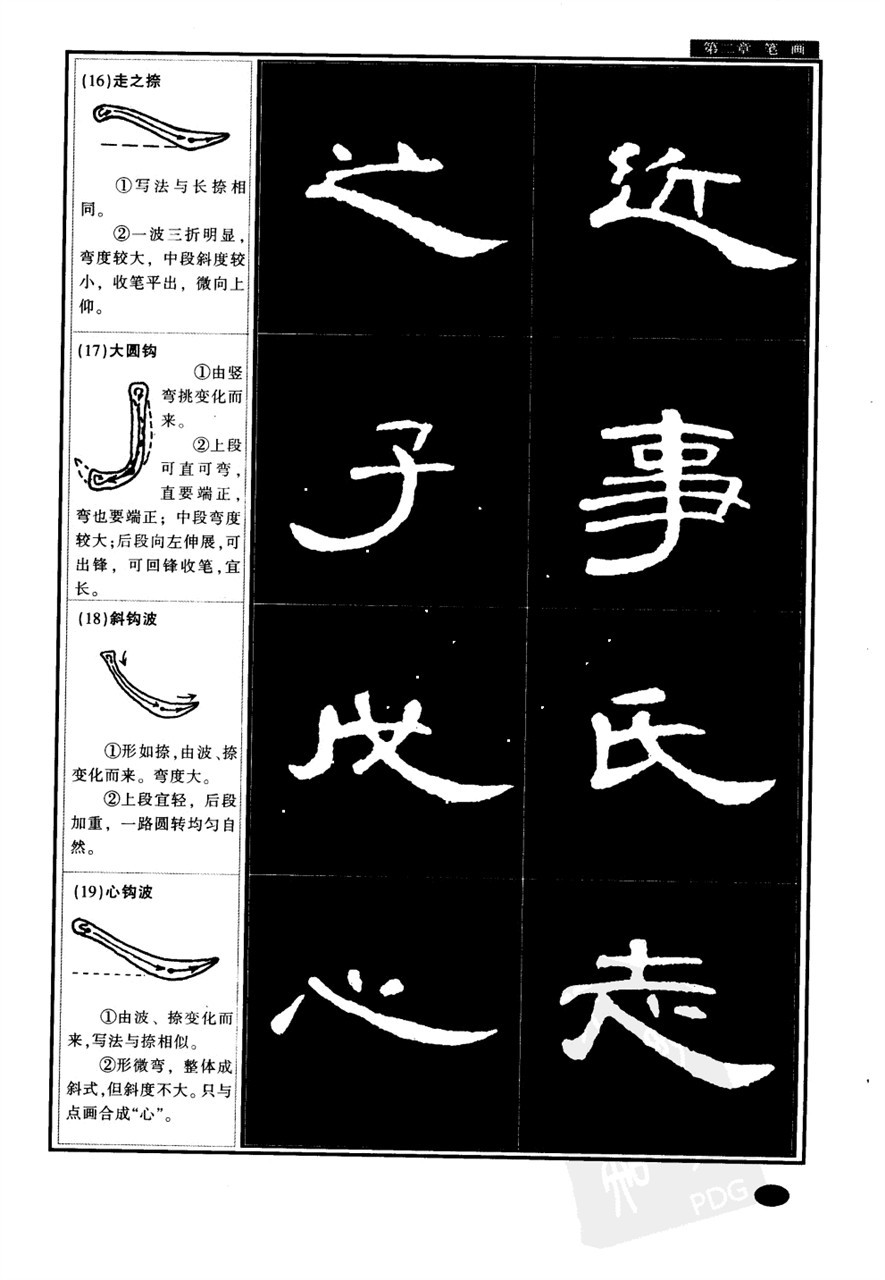 第二章 笔 画
(16)走之捺
①写法与长捺相
同。
②一波三折明显，
弯度较大，中段斜度较
小，收笔平出，微向上
仰。
之 近
(17)大圆钩
①由竖
弯挑变化而
来。
②上段
可直可弯，
直要端正，
弯也要端正；中段弯度
较大；后段向左伸展，可
出锋，可回锋收笔，宜
长。
子 事
(18)斜钩波
①形如捺，由波、捺
变化而来。弯度大。
②上段宜轻，后段
加重，一路圆转均匀自
然。
氏
(19)心钩波
①由波、捺变化而
来，写法与捺相似。
②形微弯，整体成
斜式，但斜度不大。只与
点画合成“心”。
心
PDG